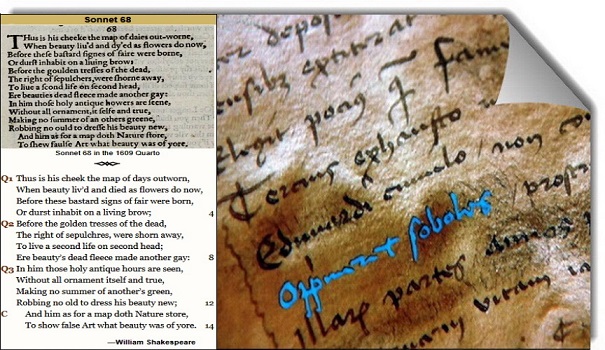 Sonnet 68
68
THus is his cheeke the map of daies out-worne,
When beauty liu'd and dy'ed as flowers do now,
Before these bastard signes of faire were borne,
Or durst inhabit on a liuing brow:
Before the goulden tresses of the dead,
The right of sepulchers, were shorne away,
To liue a scond life on second head,
Ere beauties dead fleece made another gay:
In him those holy antique howers are seene,
Without all ornament, it selfe and true,
Making no summer of an others greene,
Robbing no ould to dresse his beauty new,
And him as for a map doth Nature store,
To shew faulse Art what beauty was of yore.
Sonnet 68 in the 1609 Quarto
Q1 Thus is his cheek the map of days outworn,
When beauty liv'd and died as flowers do now,
Before these bastard signs of fair were born,
Or durst inhabit on a living brow; 4
Q2 Before the golden tresses of the dead,
The right of sepulchres, were shorn away,
To live a second life on second head;
Ere beauty's dead fleece made another gay: 8
Q3 In him those holy antique hours are seen,
Without all ornament itself and true,
Making no summer of another's green,
Robbing no old to dress his beauty new; 12
C And him as for a map doth Nature store,
To show false Art what beauty was of yore. 14
—William Shakespeare
exhausto non
Edmundi
soboles
partes
vitam